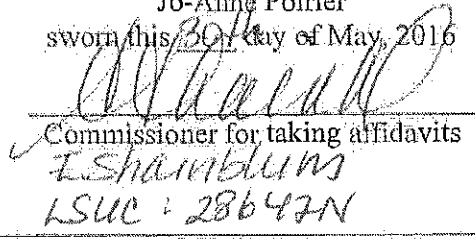 Jo-Anne Poirier
sworn this 30th day of May, 2016
Commissioner for taking affidavits
I Shainblum
LSUC : 28647N